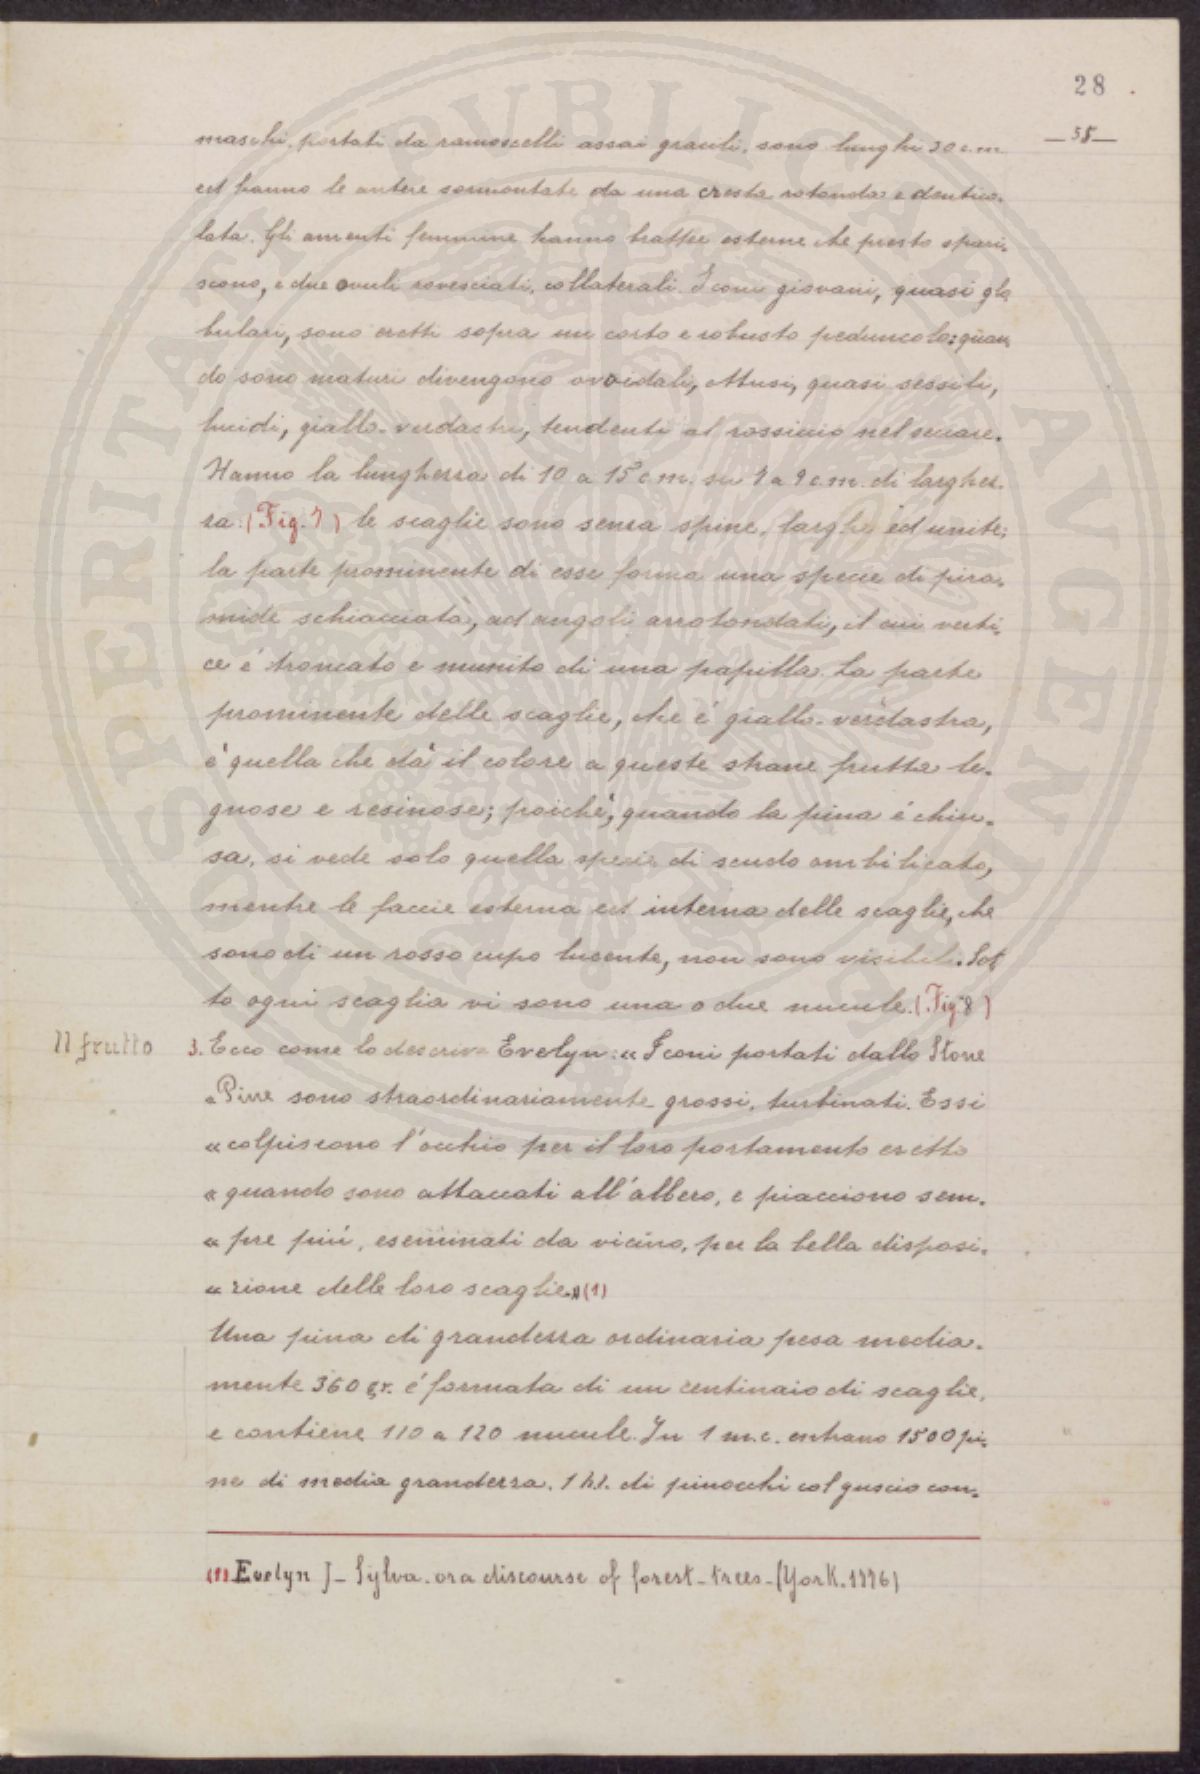 28
— 55 —
maschi, portati da ramoscelli assai gracili, sono lunghi 30 c.m
ed hanno le antere sormontate da una cresta rotonda e dentico-
lata. Gli amenti femmine hanno brattee esterne che presto spari-
scono, e due ovuli rovesciati, collaterali. I coni giovani, quasi glo
bulari, sono eretti sopra un corto e robusto peduncolo: quan
do sono maturi divengono ovoidali, ottusi, quasi sessili,
lucidi, giallo-verdastri, tendenti al rossiccio nel seccare.
Hanno la lunghezza di 10 a 15 c.m. su 7 a 9 c.m. di larghez-
za. (Fig. 7) le scaglie sono senza spine, larghe ed unite;
la parte prominente di esse forma una specie di pira-
mide schiacciata, ad angoli arrotondati, il cui verti-
ce é troncato e munito di una papilla. La parte
prominente delle scaglie, che é giallo-verdastra,
é quella che dà il colore a queste strane frutta le-
gnose e resinose; poiché, quando la pina é chiu-
sa, si vede solo quella specie di scudo ombilicato,
mentre le faccie esterna ed interna delle scaglie, che
sono di un rosso cupo lucente, non sono visibili. Sot
to ogni scaglia vi sono una o due nucule. (Fig. 8)
Il frutto
3. Ecco come lo descrive Evelyn: « I coni portati dallo Stone
« Pine sono straordinariamente grossi, turbinati. Essi
« colpiscono l'occhio per il loro portamento eretto
« quando sono attaccati all'albero, e piacciono sem-
« pre piú, eseminati da vicino, per la bella disposi-
« zione delle loro scaglie.» (1)
Una pina di grandezza ordinaria pesa media-
mente 360 gr. é formata di un centinaio di scaglie,
e contiene 110 a 120 nucule. In 1 m.c. entrano 1500 pi-
ne di media grandezza. 1 hl. di pinocchi col guscio con-
(1) Evelyn J - Sylva. or a discourse of forest-trees - (York. 1776)
SPERITATE PVBLICAE AVGENDAE PROSPERITATI